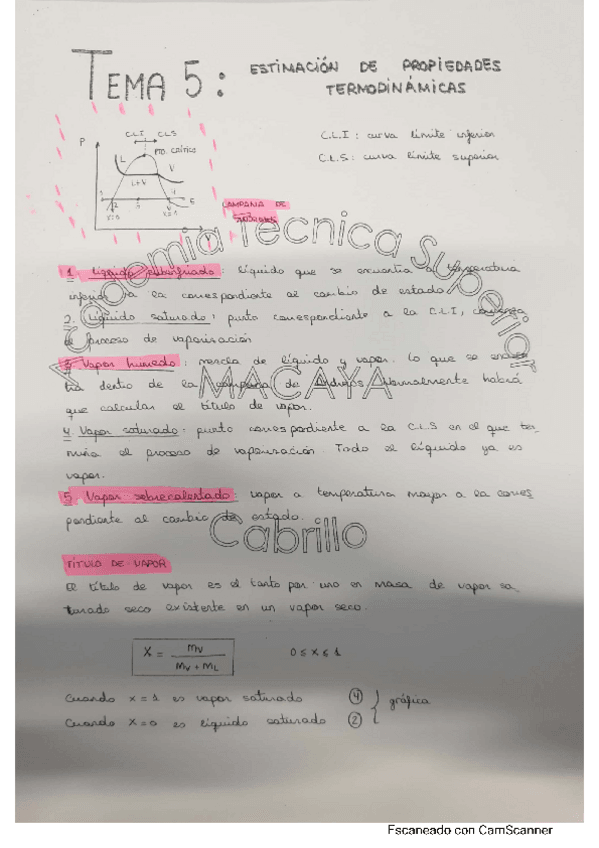 TEMA 5: ESTIMACIÓN DE PROPIEDADES
TERMODINÁMICAS
C.L.I C.L.S
P
PTO. CRÍTICO
L
V
L+V
C.L.I : curva límite inferior
C.L.S : curva límite superior
CAMPANA DE
ANDREWS
1. Líquido subenfriado: líquido que se encuentra a temperatura
inferior a la correspondiente al cambio de estado
2. Líquido saturado: punto correspondiente a la C.L.I, comienza
el proceso de vaporización
3. Vapor humedo: mezcla de líquido y vapor. Lo que se encuen
tra dentro de la campana de Andrews. Normalmente habrá
que calcular el título de vapor.
4. Vapor saturado: punto correspondiente a la C.L.S en el que ter
mina el proceso de vaporización. Todo el líquido ya es
vapor.
5. Vapor sobrecalentado: vapor a temperatura mayor a la corres
pondiente al cambio de estado.
Academia Técnica Superior
MACAYA
Cabrillo
TÍTULO DE VAPOR
El título de vapor es el tanto por uno en masa de vapor sa
turado seco existente en un vapor seco.
X = mv / mv + mL 0 ≤ x ≤ 1
Cuando x = 1 es vapor saturado ④
Cuando x = 0 es líquido saturado ② } gráfica
Escaneado con CamScanner